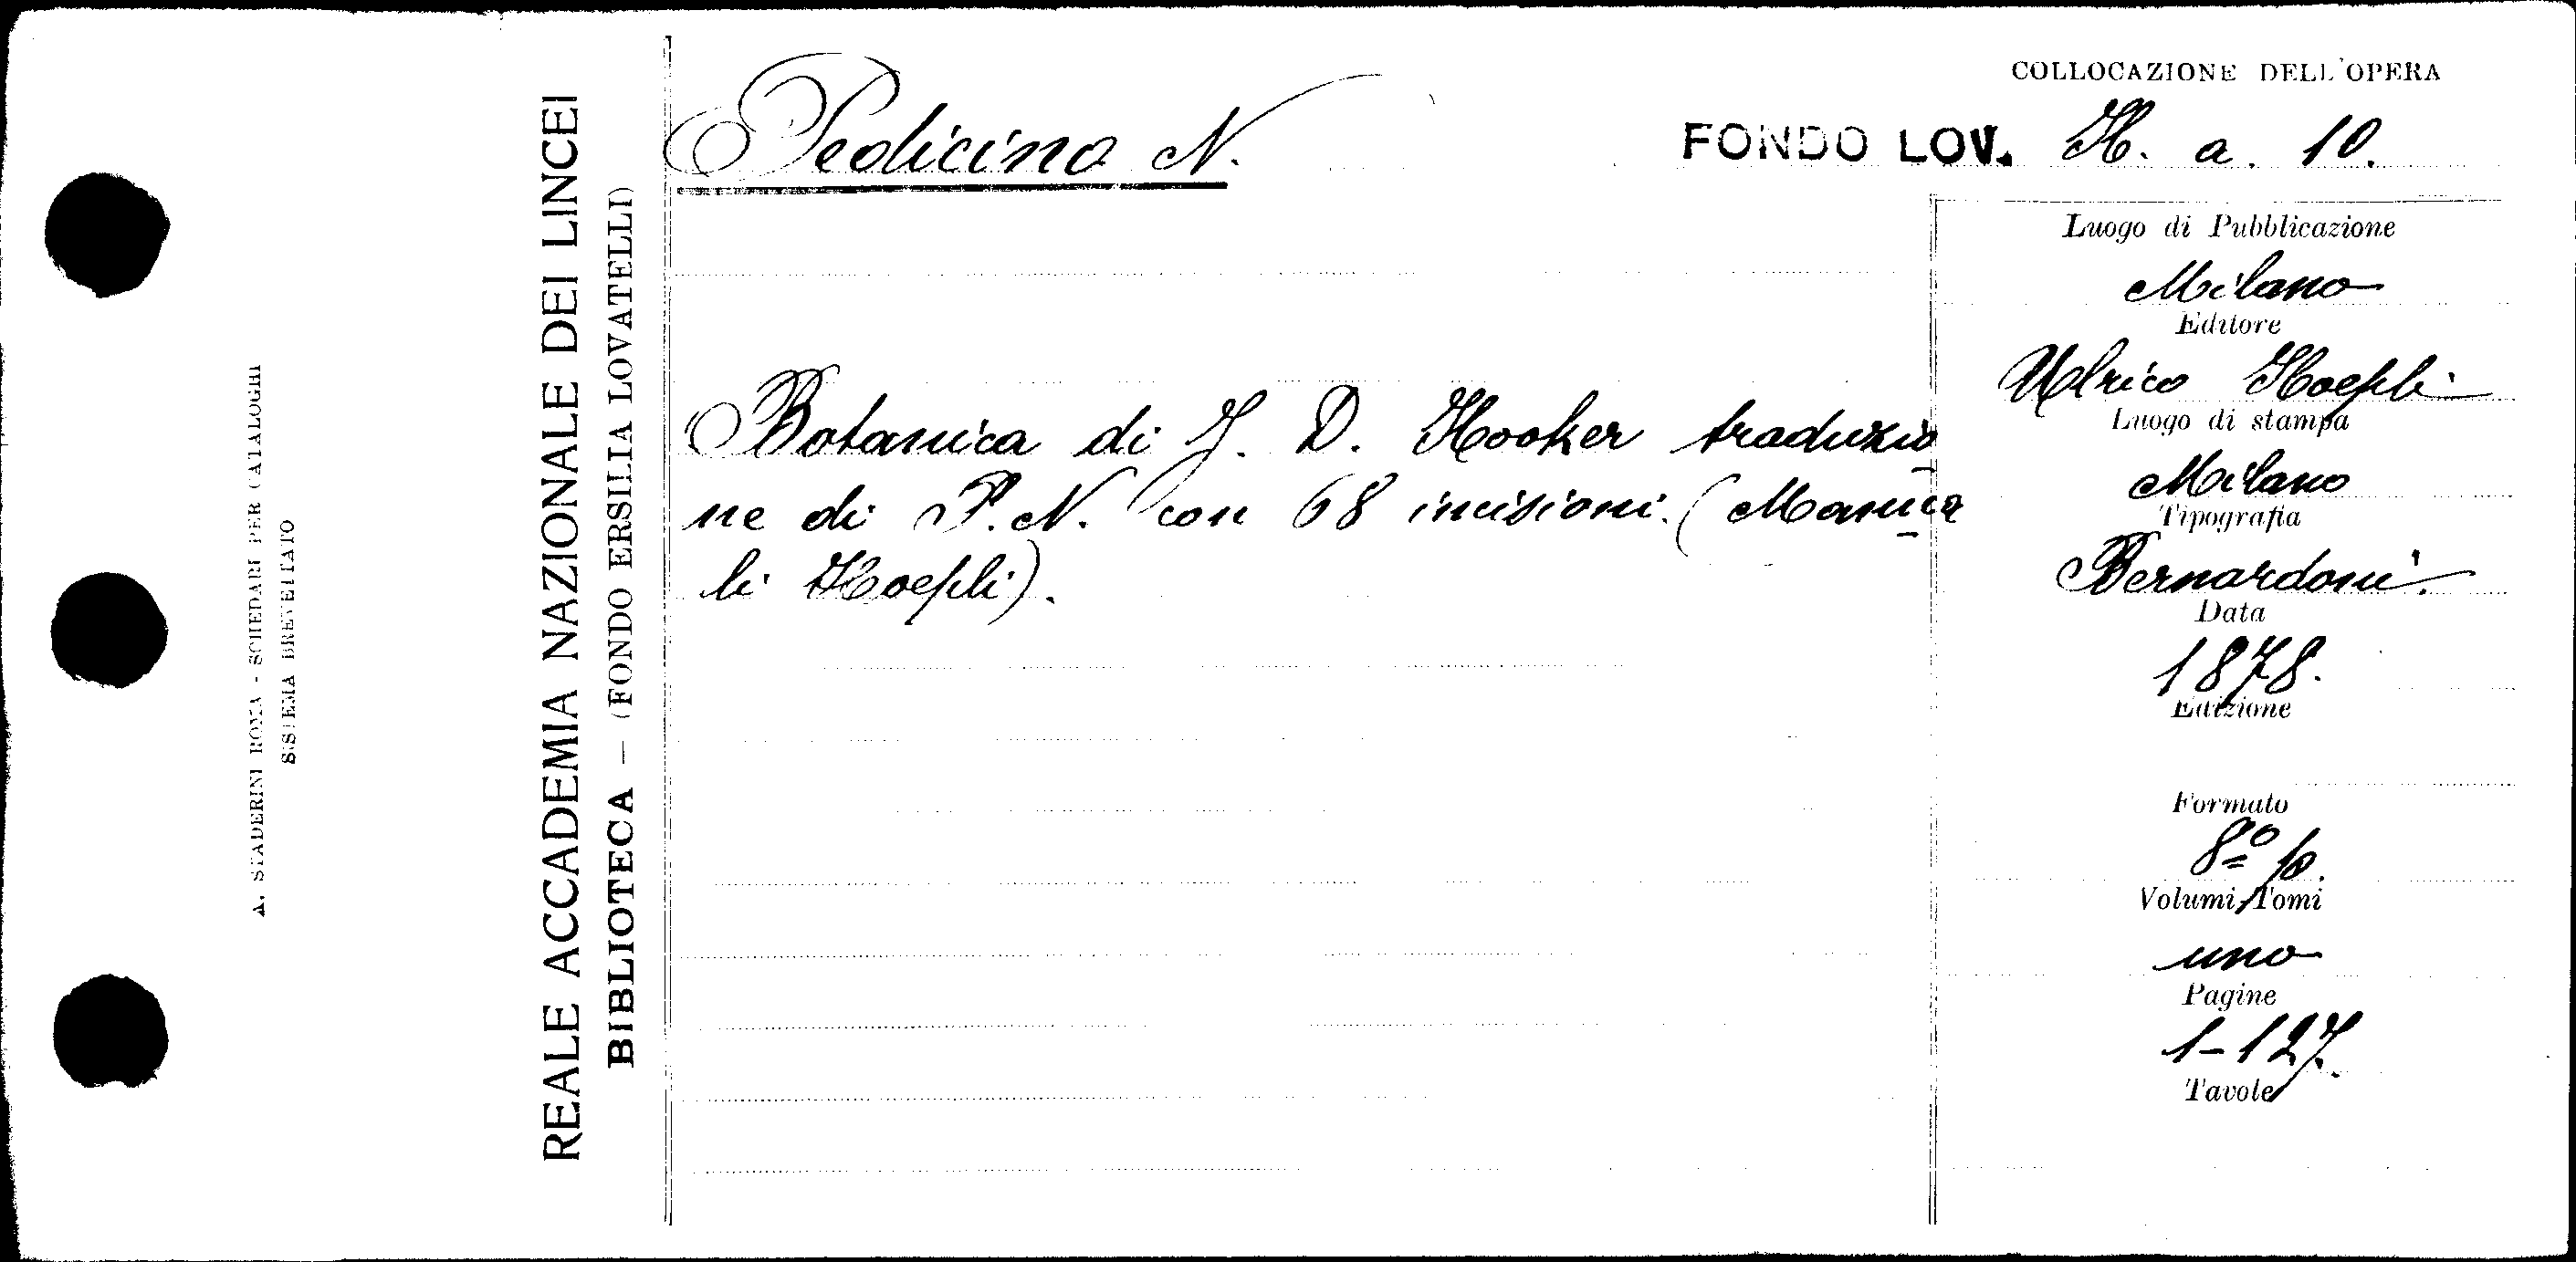 A. STADERINI ROMA - SCHEDARI PER CATALOGHI
SISTEMA BREVETTATO
REALE ACCADEMIA NAZIONALE DEI LINCEI
BIBLIOTECA — (FONDO ERSILIA LOVATELLI)
Pedicino N.
COLLOCAZIONE DELL'OPERA
FONDO LOV. H. a. 10.
Botanica di J. D. Hooker traduzio
ne di P. N. con 68 incisioni. (Manua
li Hoepli).
Luogo di Pubblicazione
Milano
Editore
Ulrico Hoepli
Luogo di stampa
Milano
Tipografia
Bernardoni.
Data
1878.
Edizione
Formato
8º p.
Volumi, Tomi
uno
Pagine
1-127.
Tavole